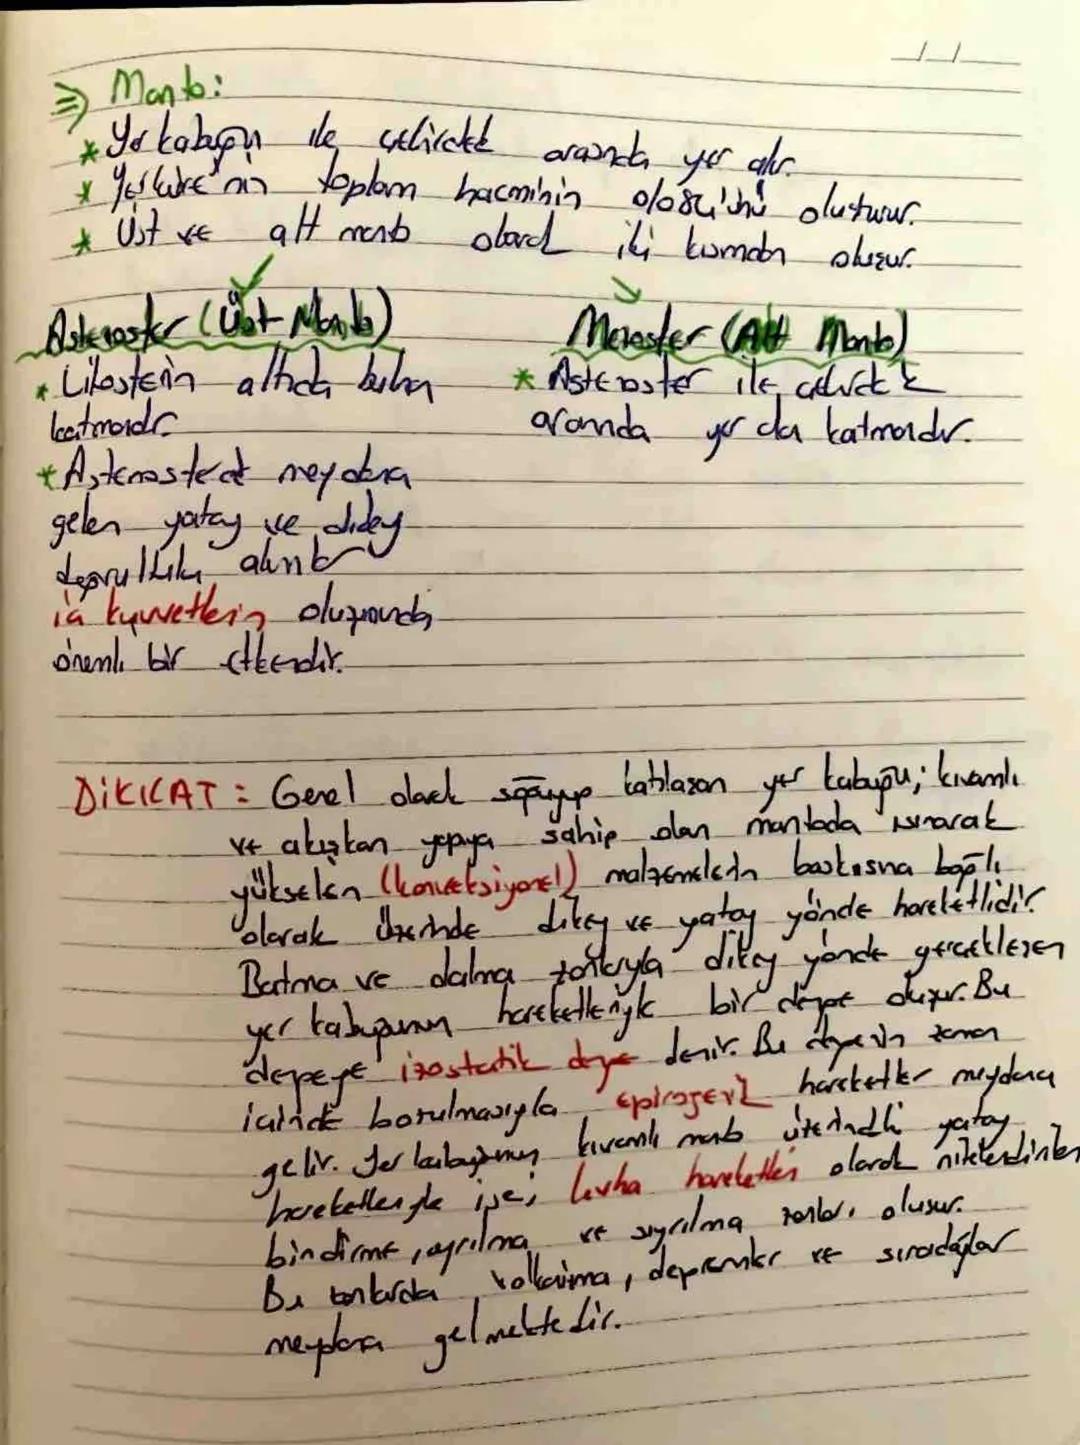 Manto:
* Yer kabuğun ile çekirdek arasında yer alır.
* Yerküre'nin toplam hacminin olarak oluşturur.
* Üst ve alt manto olarak iki kısımdan oluşur.
Astenosfer (Üst Manto)
* Litosferin altında bulunan
katmandır.
* Astenosferde meydana
gelen yatay ve dikey
doğrultulu akıntılar
iç kuvvetlerin oluşumunda
önemli bir etkendir.
Mezosfer (Alt Manto)
* Astenosfer ile çekirdek
arasında yer alan katmandır.
DİKKAT : Genel olarak soğuyup katılaşan yer kabuğu; kıvamlı
ve akışkan yapıya sahip olan mantoda ısınarak
yükselen (konveksiyonel) malzemelerin baskısına bağlı
olarak üzerinde dikey ve yatay yönde hareketlidir.
Batma ve dalma zonlarıyla dikey yönde gerçekleşen
yer kabuğunun hareketleriyle bir denge oluşur. Bu
dengeye izostatik denge denir. Bu dengenin zaman
içinde bozulmasıyla epirojenik hareketler meydana
gelir. Yer kabuğunun kıvamlı manto üzerindeki yatay
hareketleriyle ise; levha hareketleri olarak nitelendirilen
bindirme, ayrılma ve sıyrılma zonları oluşur.
Bu zonlarda volkanizma, depremler ve sıradağlar
meydana gelmektedir.